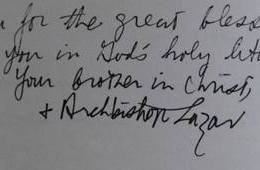 for the great bless
you in God's holy
Your brother in Christ,
+ Archbishop Lazar